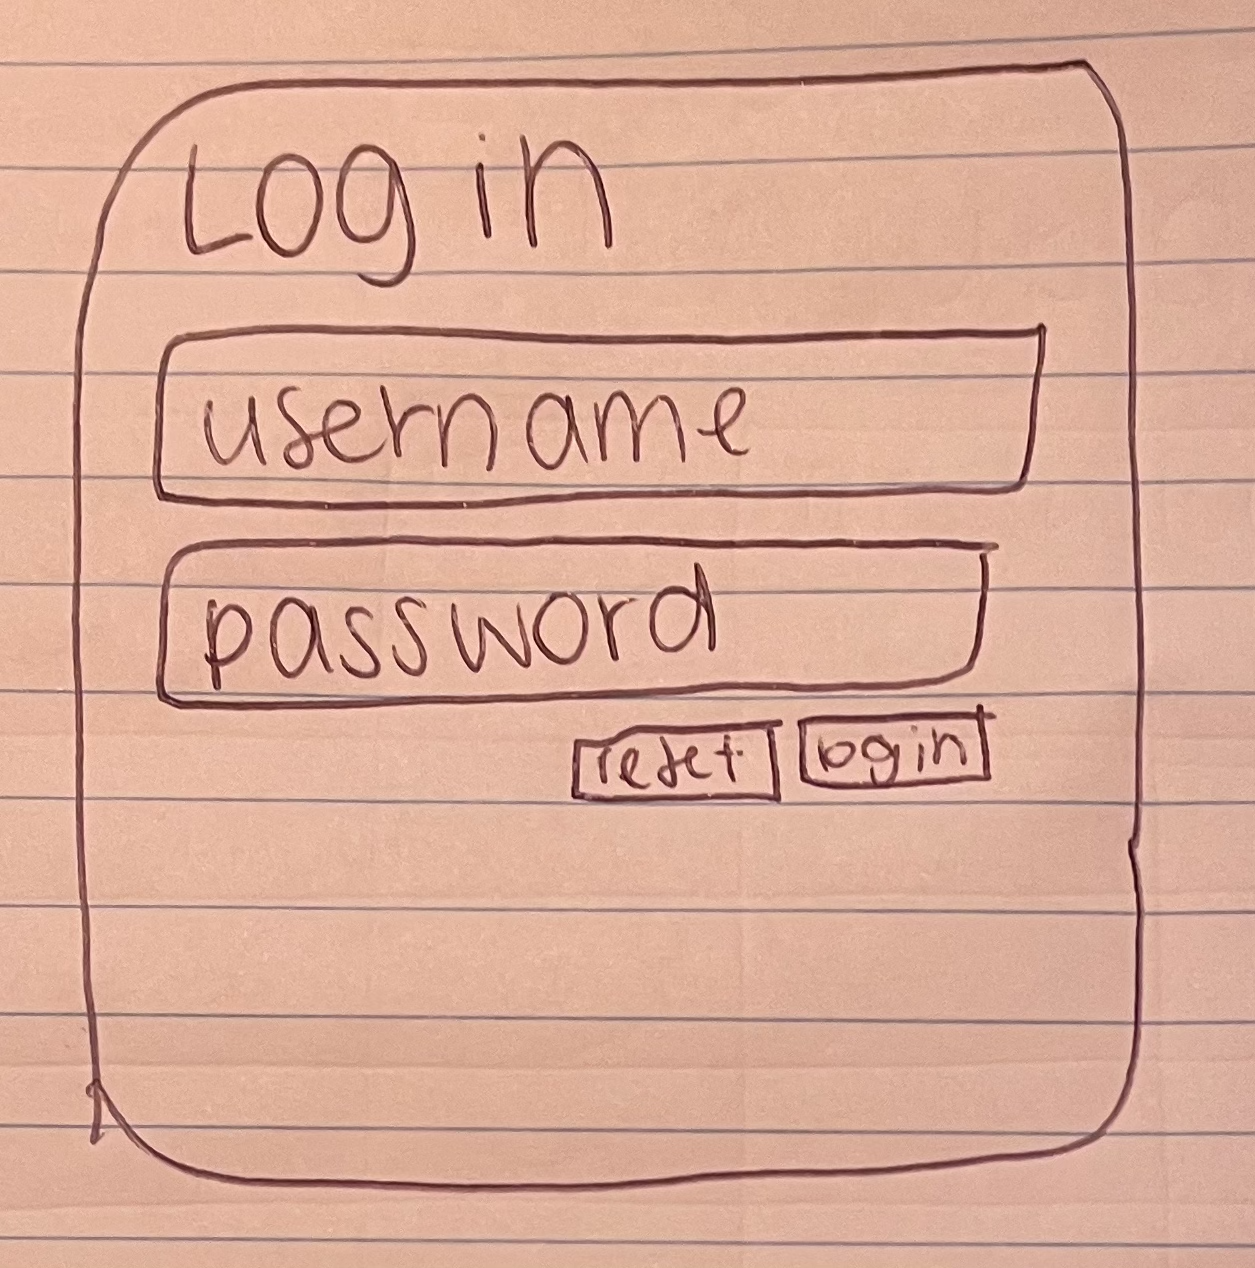 Log in
username
password
reset login